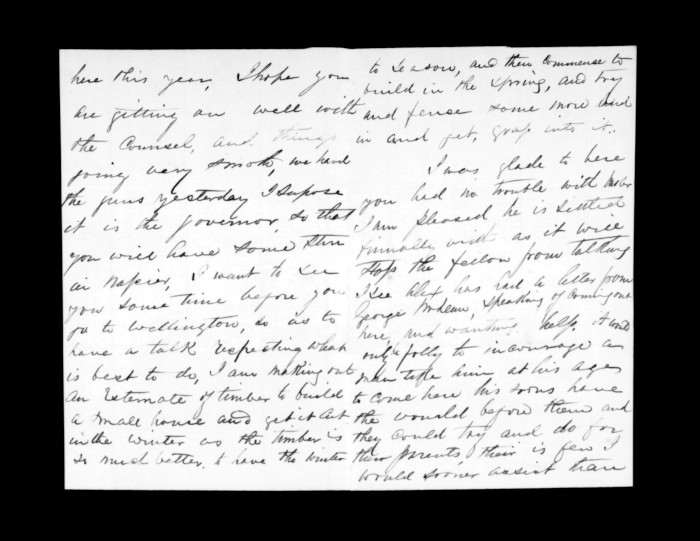 here this year, I hope you
are gitting on well with
the Counsel, and things
going very smoth, we hard
the guns yesterday I supose
it is the governor, so that
you will have some
in Napier, I want to see
you some time before you
go to Wellington, so as to
have a talk respecting what
is best to do, I am making out
an Estemate of timber to build
a small house and get it cut
in the winter as the timber is
so much better, to have the winter
to season, and then commense to
build in the spring, and try
and fense some more and
in and get, grass into it.
I was glade to here
you had no trouble with
I am pleased he is settled
finnally with as it will
stop the fellow from talking
I see Alex has had a letter from
George speaking of coming out
here, and wanting help, it would
only be folly to incourage a
man like him at his age
to come here his sons have
the would before them and
they could try and do for
their parents their is few I
would sooner assist than